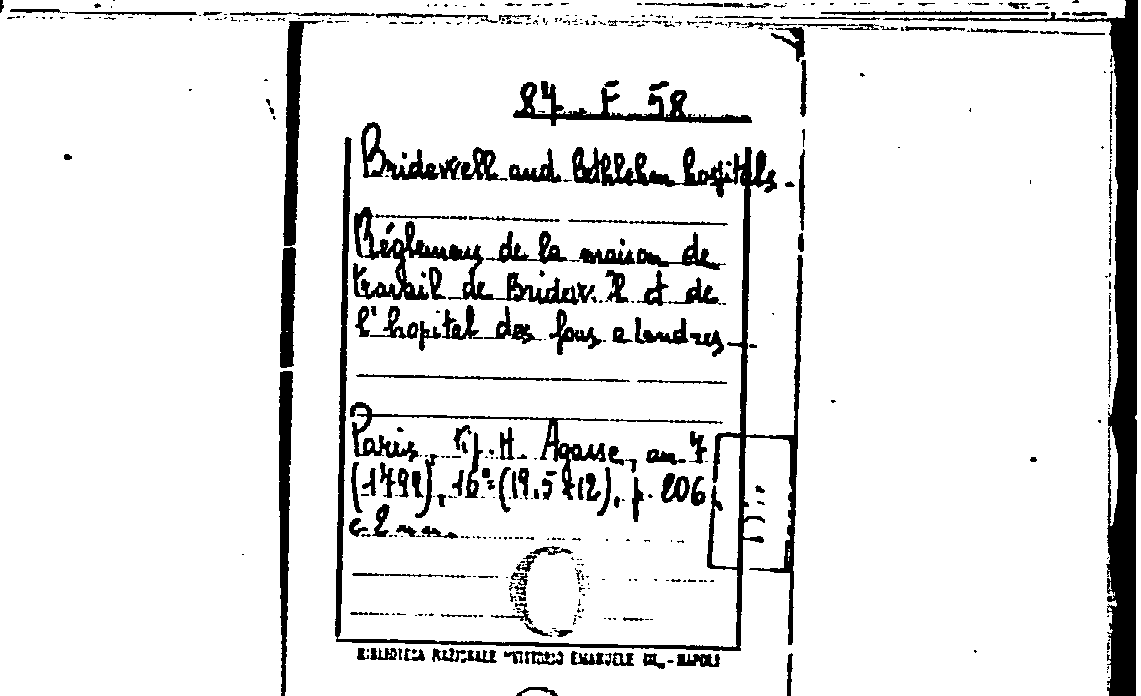 84. F 58
Bridewell and Bethlehem hospitals.
Réglemens de la maison de
travail de et de
l'hopital des fous a Londres
Paris, H. Agasse, an 7
(1798), 16° (19.5x12), p. 206
c 2
BIBLIOTECA NAZIONALE "VITTORIO EMANUELE III" - NAPOLI